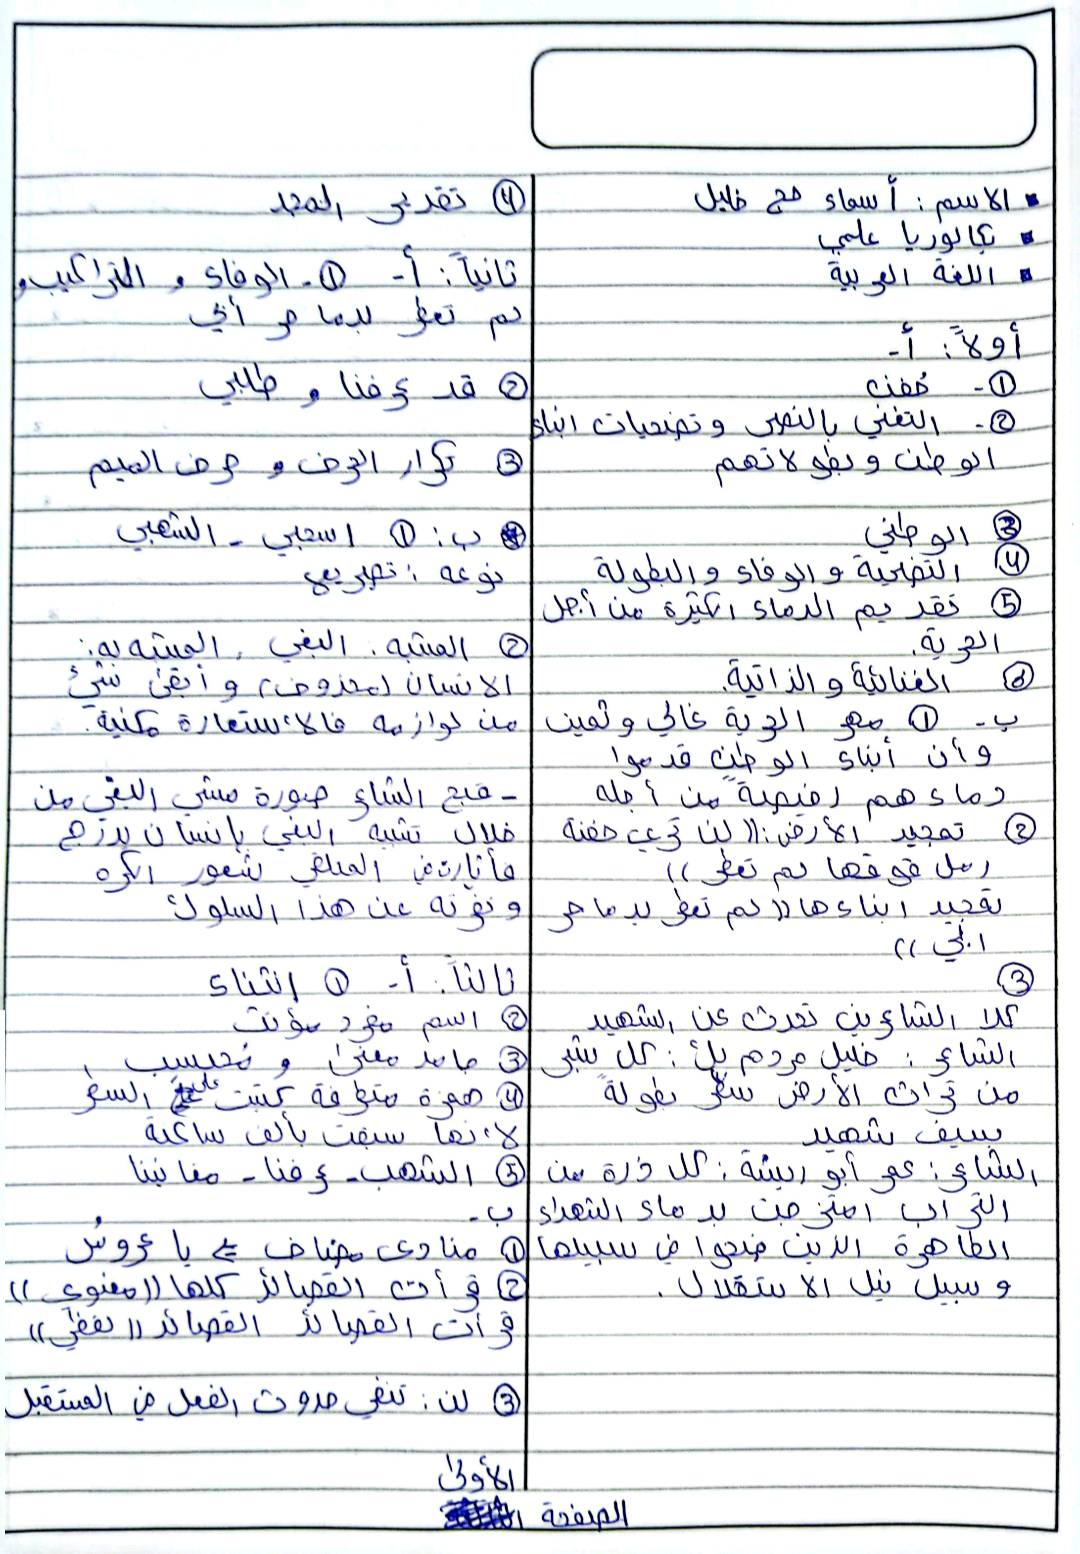 الاسم : أسماء حج خليل
بكالوريا علمي
اللغة العربية
أولاً : أ-
①- حفنة
②- التغني بالنصر وتضحيات ابناء
الوطن وبطولاتهم
③ الوطني
④ التضحية والوفاء والبطولة
⑤ تقديم الدماء الكثيرة من أجل
الحرية.
⑥ الغنائية والذاتية.
ب- ① مهر الحرية غالي وثمين
وأن أبناء الوطن قدموا
دماءهم رخيصة من أجله
② تمجيد الأرض :(( لن تري حفنة
رمل فوقها لم تعطر ))
تمجيد ابناءها (( لم تعطر بدما حر
ابي ))
③
كلا الشاعرين تحدث عن الشهيد
الشاعر : خليل مردم بك : كل شبر
من تراث الأرض سطر بطولة
بسيف شهيد
الشاعر : عمر أبو ريشة : كل ذرة من
التراب امتزجت بدماء الشهداء
الطاهرة الذين ضحوا في سبيلها
وسبيل نيل الاستقلال .
④ تقديس المجد
ثانياً : أ- ①- الوفاء و التراكيب و
لم تعطر بدما حر أبي
② قد عرفنا و طلبي
③ تكرار الحرف و حرف الميم
ب : ① اسحبي - الشهبِ
نوعه : تصريع
② المشبه : البغي , المشبه به :
الانسان (محذوف) وأبقى شيئ
من لوازمه فالاستعارة مكنية.
- قبح الشاعر صورة مشي البغي من
خلال تشبه البغي بإنسان يترنح
فأثار في المتلقي شعور الكره
ونفرته عن هذا السلوك
ثالثاً : أ- ① إنشاء
② اسم مفرد مؤنث
③ جامد معنى و فحسب
④ همزة متطرفة كتبت على السطر
لأنها سبقت بألف ساكنة
⑤ الشهب - عرفنا - مغانينا
ب-
① منادى مضاف ⇐ يا عروسُ
② قرأت القصائد كلها (( معنوي ))
قرأت القصائد القصائد (( لفظي ))
③ لن : تنفي حدوث الفعل في المستقبل
الأولى
الصفحة